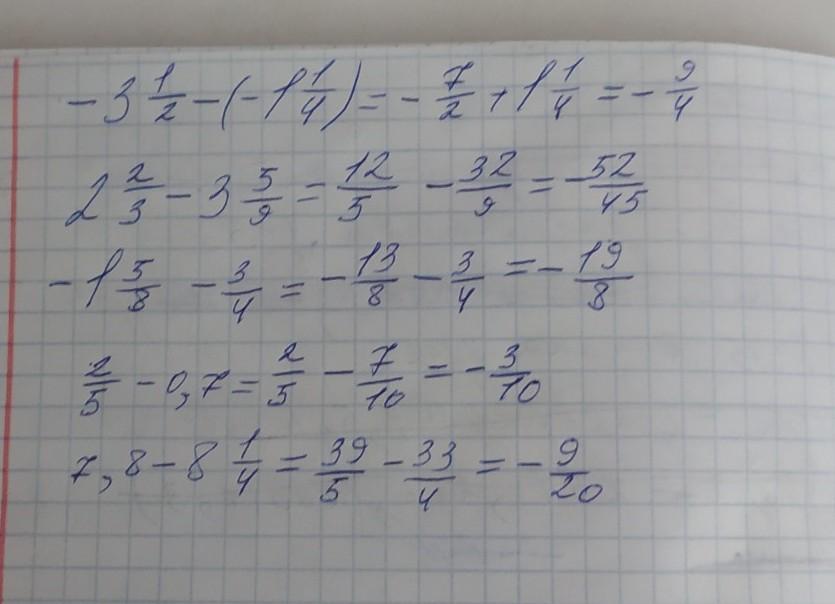 -3 1/2 - (-1 1/4) = - 7/2 + 1 1/4 = - 9/4
2 2/3 - 3 5/9 = 12/5 - 32/9 = - 52/45
-1 5/8 - 3/4 = - 13/8 - 3/4 = - 19/8
2/5 - 0,7 = 2/5 - 7/10 = - 3/10
7,8 - 8 1/4 = 39/5 - 33/4 = - 9/20